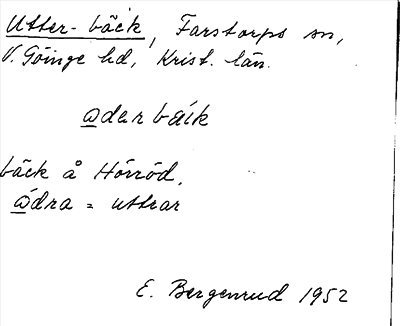 Utter-bäck, Farstorps sn,
V. Göinge hd, Krist. län.
ɷderbäik
bäck å Hörröd.
ɷ́dra = uttrar
E. Bergenrud 1952